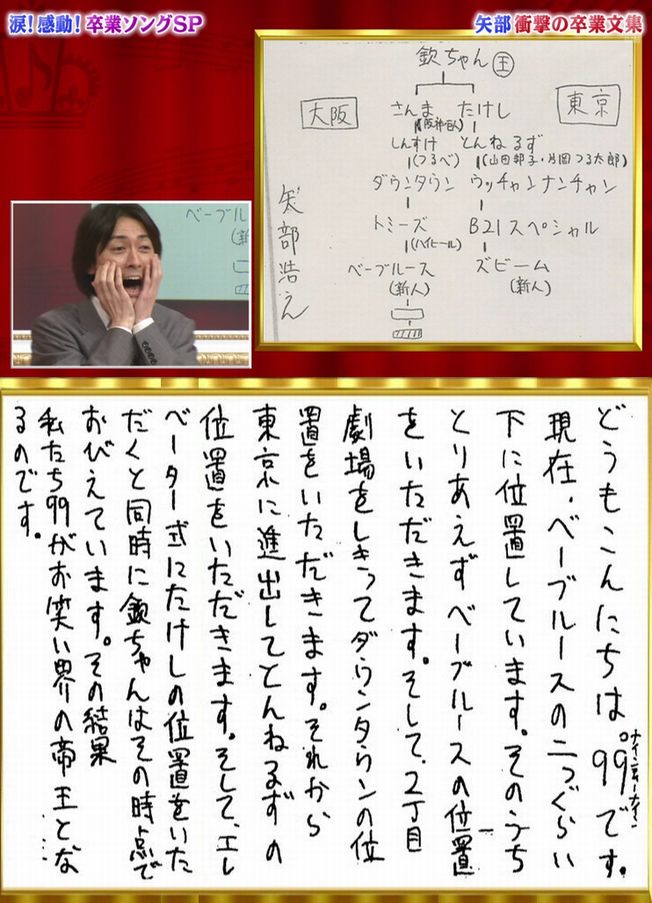 涙!感動!卒業ソングSP
矢部 衝撃の卒業文集
欽ちゃん 王
大阪
東京
さんま たけし
(阪神巨人)
しんすけ とんねるず
(つるべ) (山田邦子・片岡つる太郎)
ダウンタウン ウッチャンナンチャン
トミーズ B21スペシャル
(ハイヒール)
ベーブルース ズビーム
(新人) (新人)
矢部浩之
ベーブル
(新
どうもこんにちは。99です。
ナインティーナイン
現在、ベーブルースの二つぐらい
下に位置しています。そのうち
とりあえずベーブルースの位置
をいただきます。そして、2丁目
劇場をしきってダウンタウンの位
置をいただきます。それから
東京に進出してとんねるずの
位置をいただきます。そして、エレ
ベーター式にたけしの位置をいた
だくと同時に欽ちゃんはその時点で
おびえています。その結果
私たち99がお笑い界の帝王とな…
るのです。